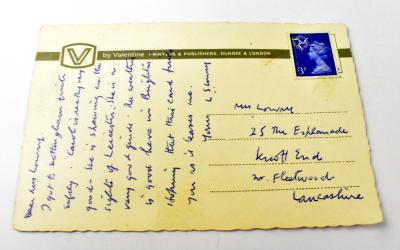 by Valentine PRINTERS & PUBLISHERS, DUNDEE & LONDON
V
3P
Dear Mrs Lowry,
I got to Nottingham quite
safely. Carol is really very
good. She is showing me the
sights of Leicester. She is a
very good guide. The weather
is good here in Brighton
Hoping that this card finds
you as it leaves me.
Yours L S Lowry
Mrs Lowry
25 The Esplanade
Knott End
Nr. Fleetwood
Lancashire